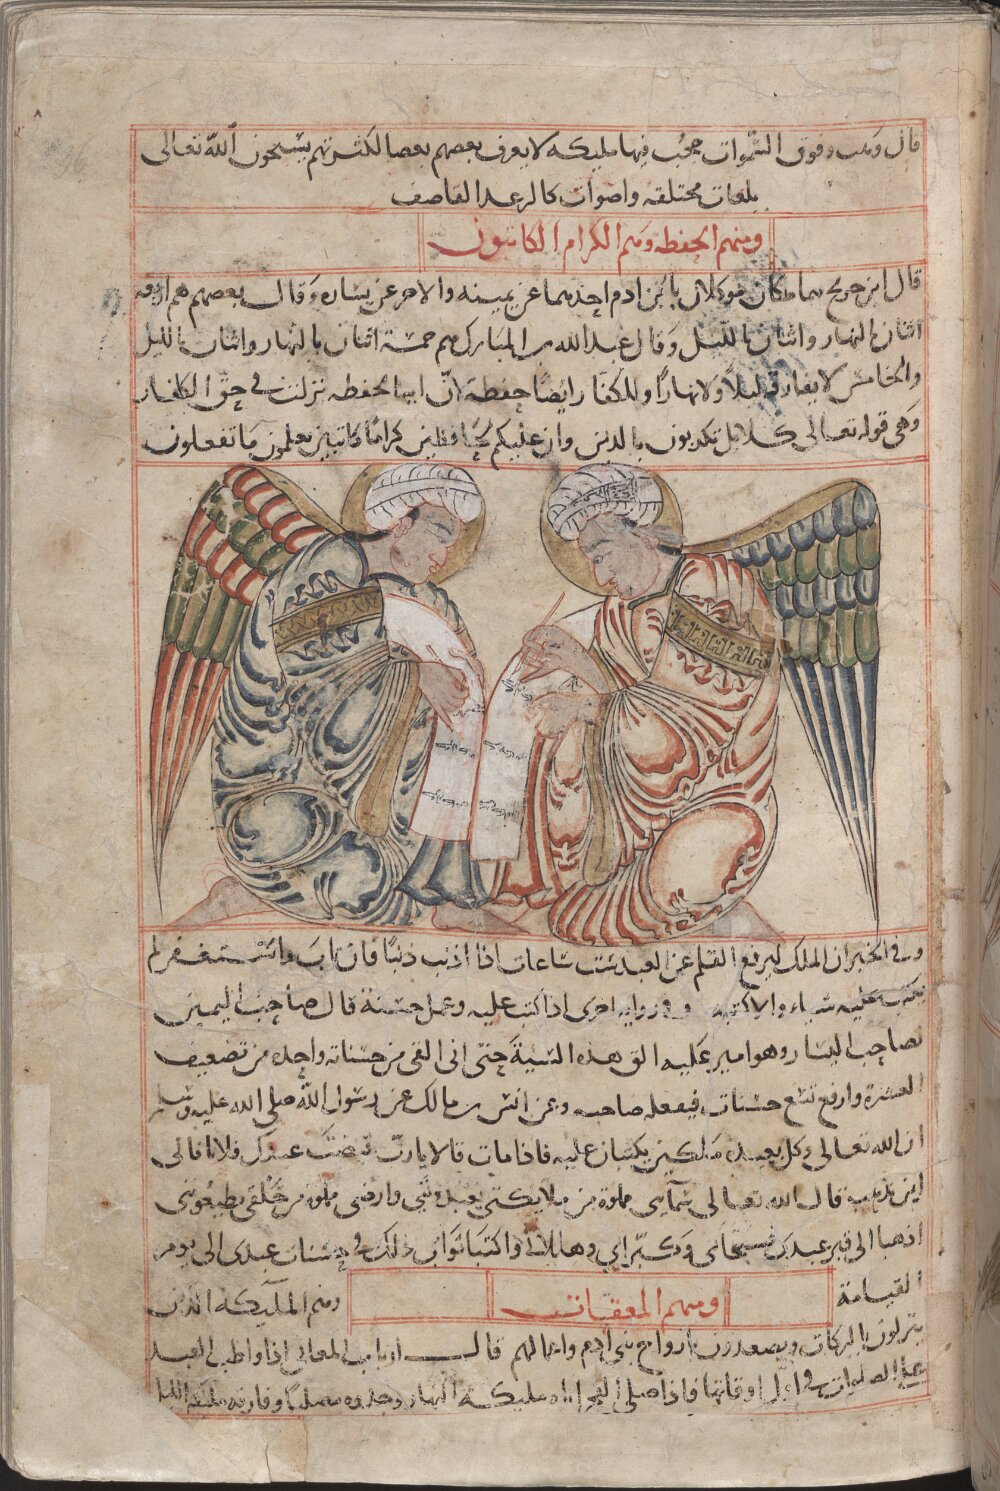 قال وهب وفوق السموات حجب فيها مليكة لا يعرف بعضهم بعضا لكثرتهم يسبحون الله تعالى
بلغات مختلفه واصوات كالرعد القاصف
ومنهم الحفظه وهم الكرام الكاتبون
قال ابن جريح هما ملكان موكلان بابن ادم احدهما عن يمينه والاخر عن يساره وقال بعضهم هم اربعه
اثنان بالنهار واثنان بالليل وقال عبد الله بن المبارك هم خمسة اثنان بالنهار واثنان بالليل
والخامس لا يفارق ليلا ولا نهارا وللكفار ايضا حفظة لان اية الحفظه نزلت في حق الكفار
وهي قوله تعالى كلا بل تكذبون بالدين وان عليكم لحافظين كراما كاتبين يعلمون ما تفعلون
وفي الخبر ان الملك ليرفع القلم عن العبد ست ساعات اذا اذنب ذنبا فان تاب واستغفر لم
يكتب عليه شياء والا كتبه وفي رواية اخرى اذا كتب عليه وعمل حسنة قال صاحب اليمين
لصاحب اليسار وهو امير عليه الق هذه السيئة حتى انى القى من حسناته واحده من تضعيف
العشرة وارفع تسع حسنات فيفعله صاحبه وعن انس بن مالك عن رسول الله صلى الله عليه وسلم
ان الله تعالى وكل بعبده ملكين يكتبان عليه فاذا مات قالا يا رب قبضت عبدك فلانا فالى
اين نذهب قال الله تعالى سمآئى مملوة من ملايكتى يعبدونى وارضى مملوة من خلقى يطيعونى
اذهبا الى قبر عبدى فسبحانى وكبرانى وهللانى واكتبا ثواب ذلك في حسنات عبدى الى يوم
القيامة
ومنهم المعقبات
ومنهم المليكة الذين
ينزلون بالبركات ويصعدون بارواح بني ادم واعمالهم قال ارباب المعانى اذا واظب العبد
على الصلوات في اول اوقاتها فاذا صلى الفجر اتاه مليكة النهار وجدوه مصليا وفارقه مليكة الليل